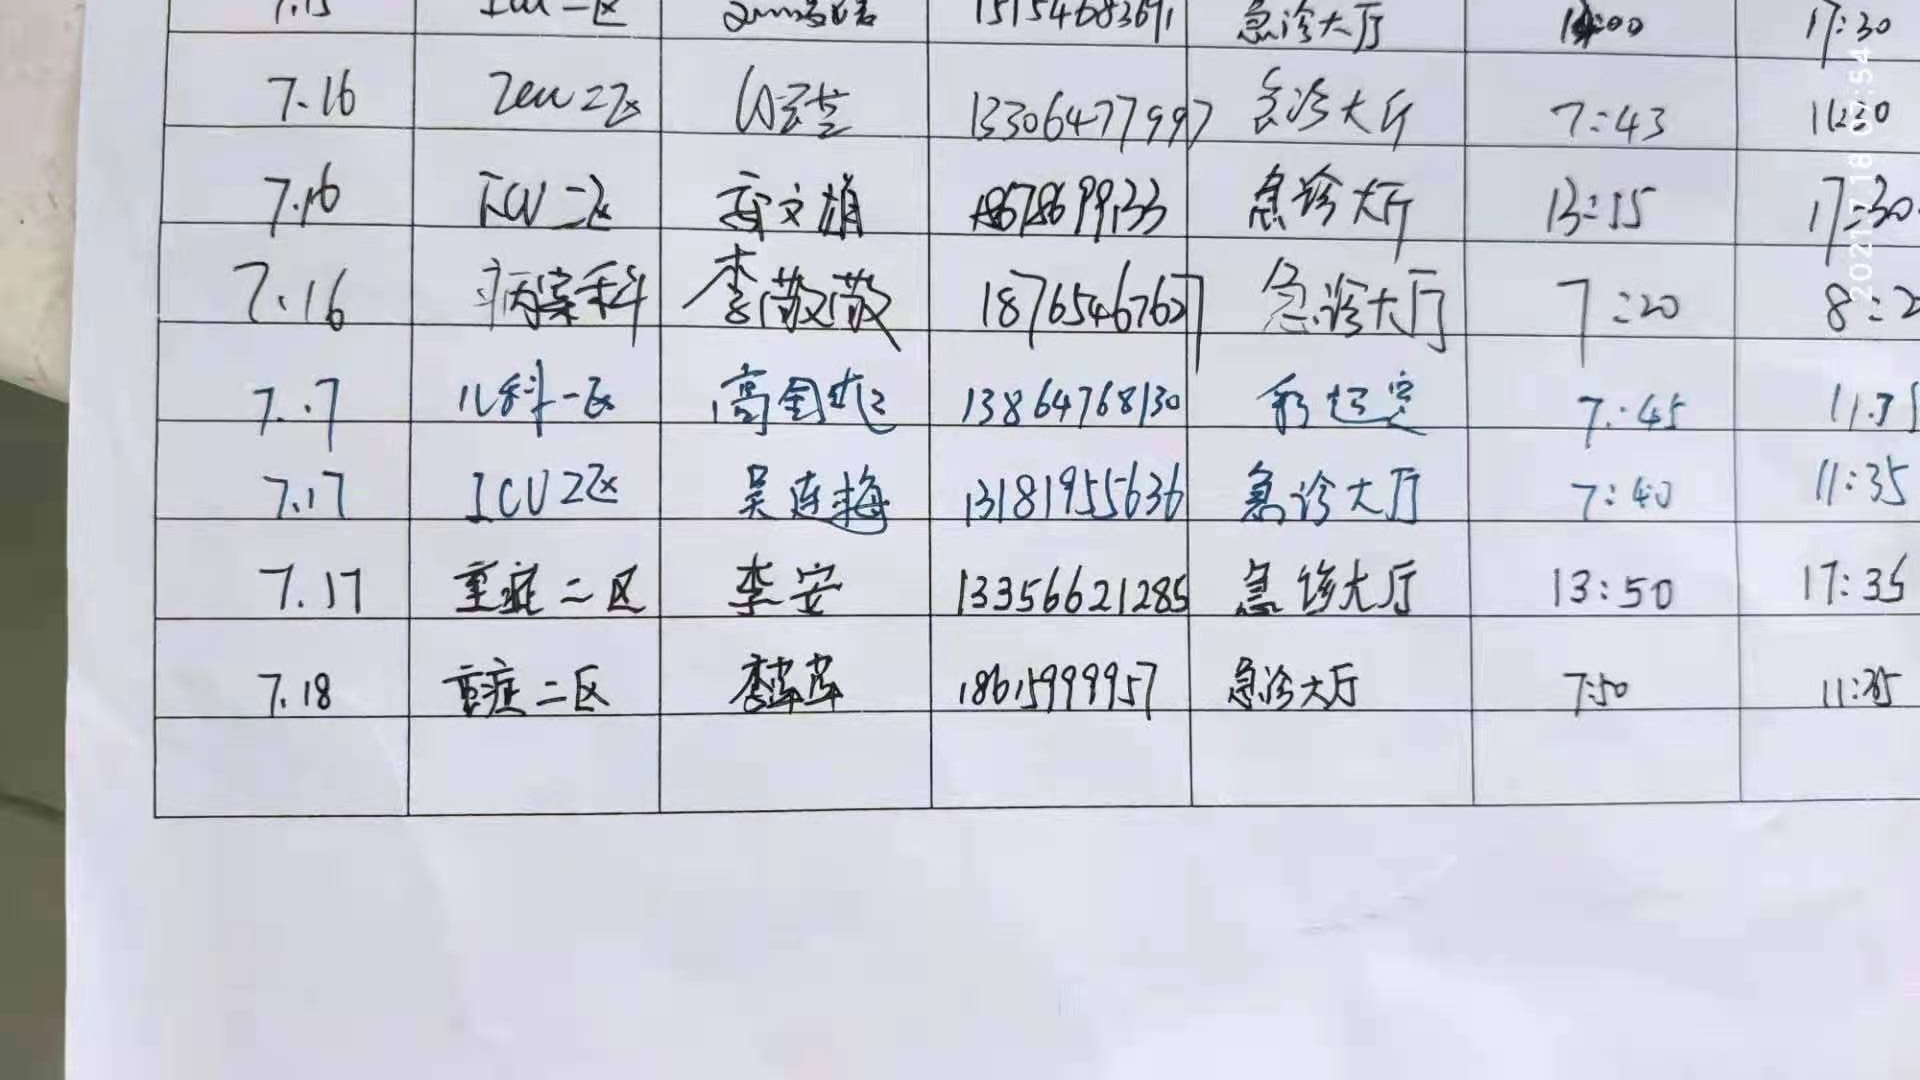 7.15 ICU二区 15154683691 急诊大厅 17:30
7.16 ICU二区 13306477997 急诊大厅 7:43 11:30
7.16 ICU二区 急诊大厅 13:55 17:30
7.16 病案科 李散散 18765467627 急诊大厅 7:20 8:2
7.17 儿科一区 13864768130 7:45 11:35
7.17 ICU二区 吴连梅 13181955636 急诊大厅 7:40 11:35
7.17 重症二区 李安 13356621285 急诊大厅 13:50 17:35
7.18 重症二区 18615999957 急诊大厅 7:50 11:35